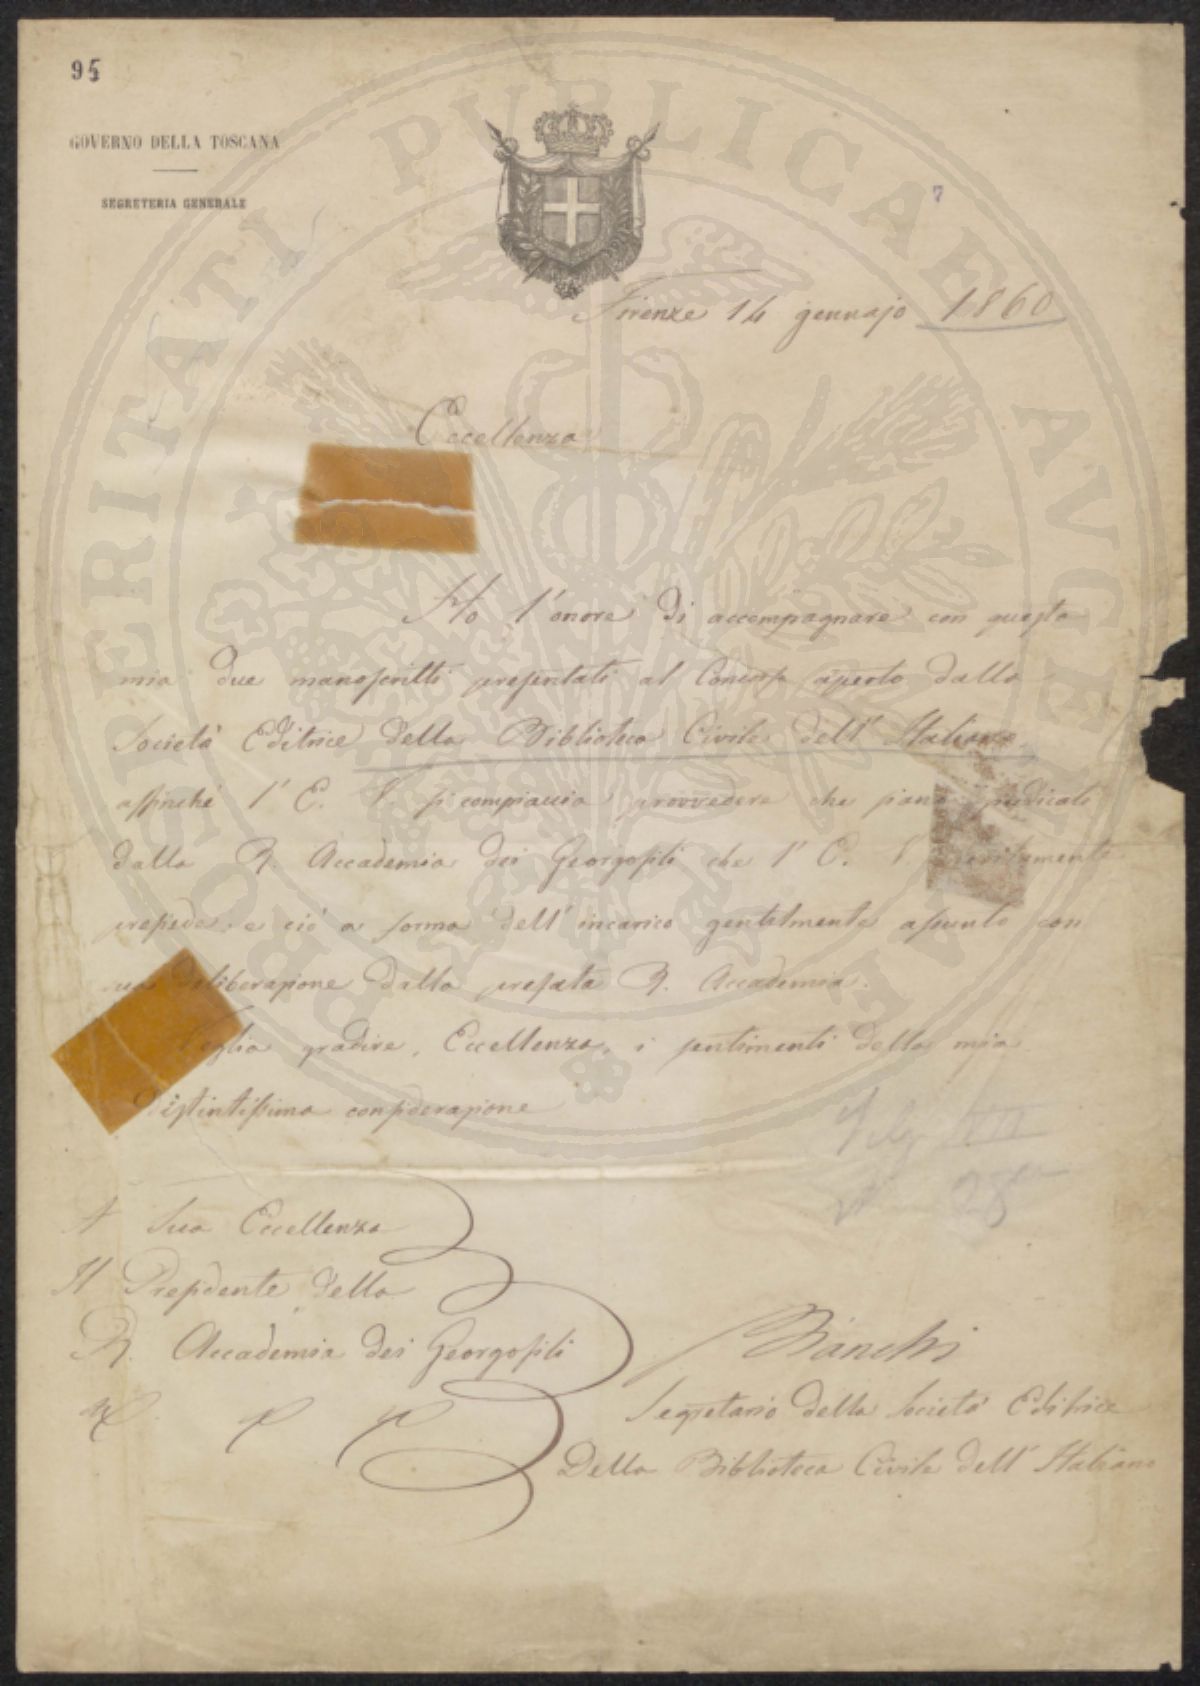 95
GOVERNO DELLA TOSCANA
SEGRETERIA GENERALE
7
Firenze 14 gennajo 1860
Eccellenza
Ho l'onore di accompagnare con questa
mia due manoscritti presentati al Concorso aperto dalla
Società Editrice della Biblioteca Civile dell'Italiano,
affinchè l'E. V. si compiaccia provvedere che siano giudicati
dalla R. Accademia dei Georgofili che l'E. V. meritamente
presiede, e ciò a forma dell'incarico gentilmente assunto con
sua deliberazione dalla prefata R. Accademia.
Voglia gradire, Eccellenza, i sentimenti della mia
distintissima considerazione
A Sua Eccellenza
Il Presidente della
R. Accademia dei Georgofili
Bianchi
Segretario della Società Editrice
Della Biblioteca Civile dell'Italiano
PROSPERITATI PUBLICAE AVGENDAE